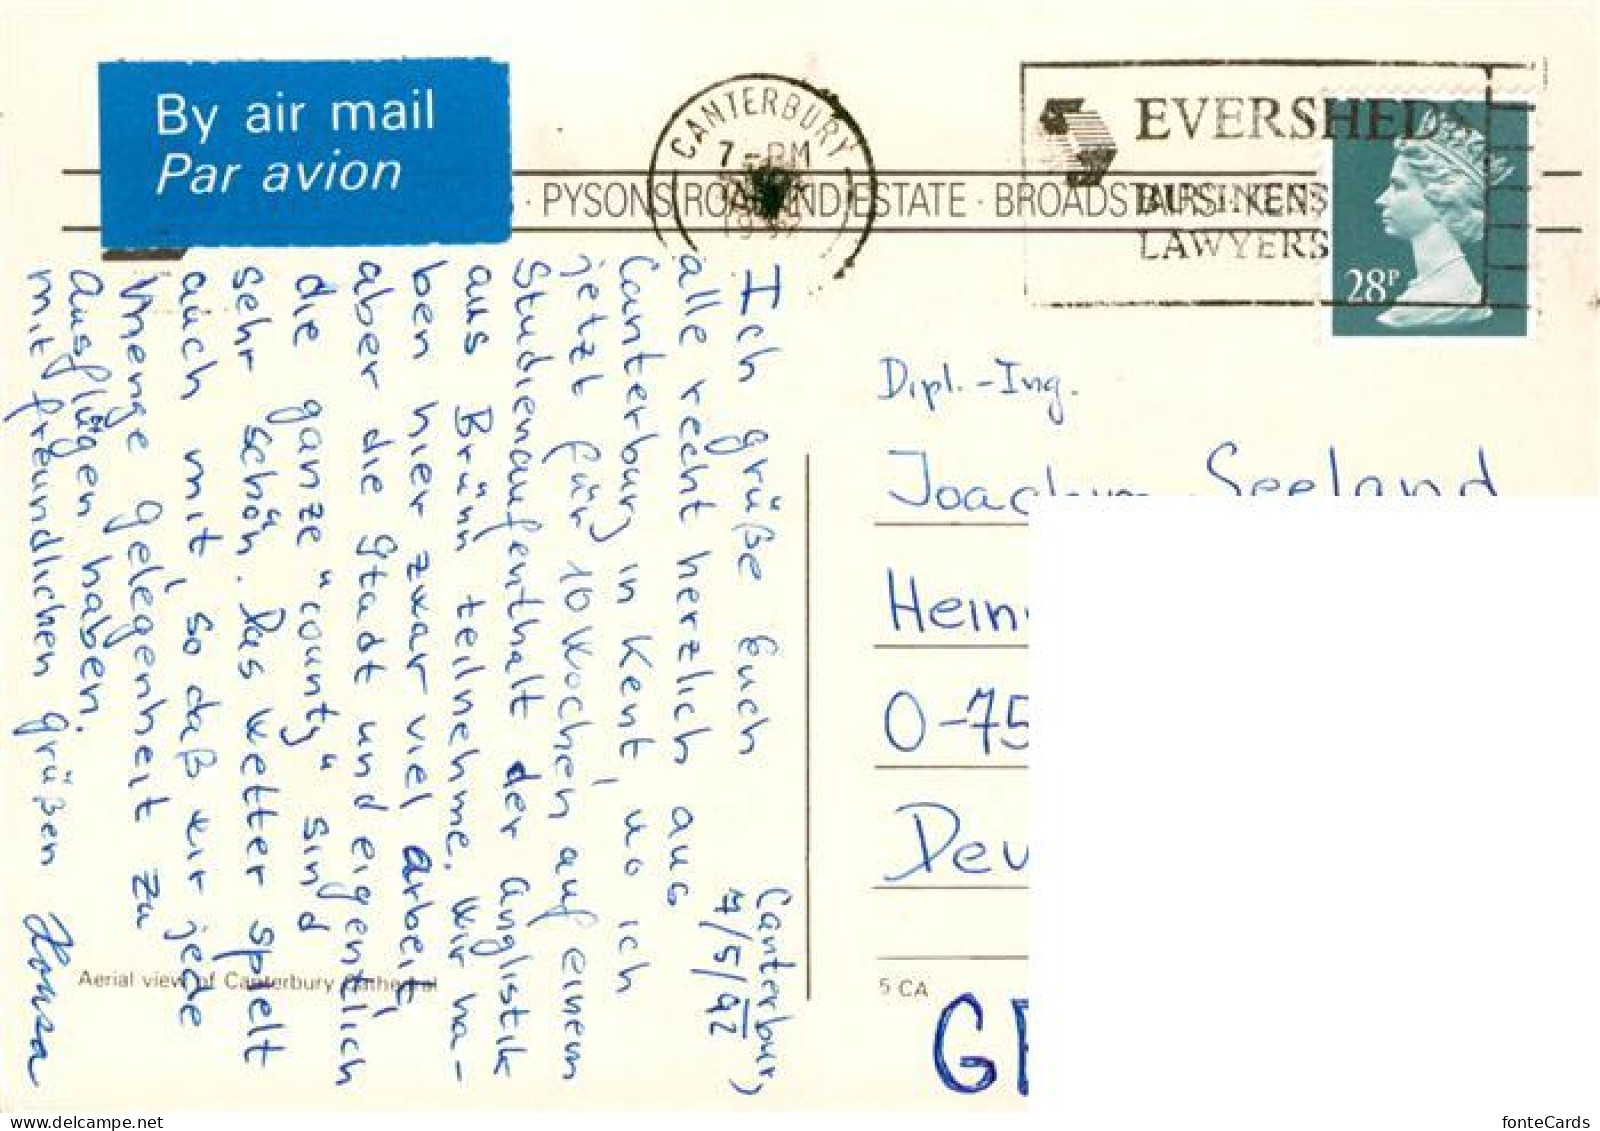 By air mail
Par avion
CANTERBURY
7-PM
EVERSHEDS
BUSINESS
LAWYERS
28P
PYSONS ROAD IND ESTATE · BROADSTAIRS · KENT
Canterbury
7/5/92
Ich grüße Euch
alle recht herzlich aus
Canterbury in Kent, wo ich
jetzt für 10 Wochen auf einem
Studienaufenthalt der Anglistik
aus Brünn teilnehme. Wir ha-
ben hier zwar viel Arbeit,
aber die Stadt und eigentlich
die ganze "county" sind
sehr schön. Das Wetter spielt
auch mit, so daß wir jede
Menge Gelegenheit zu
Ausflügen haben.
Mit freundlichen Grüßen Honza
Dipl.-Ing.
Joachim Seeland
Hein
O-75
Deu
Aerial view of Canterbury Cathedral
5 CA
GE
fonteCards